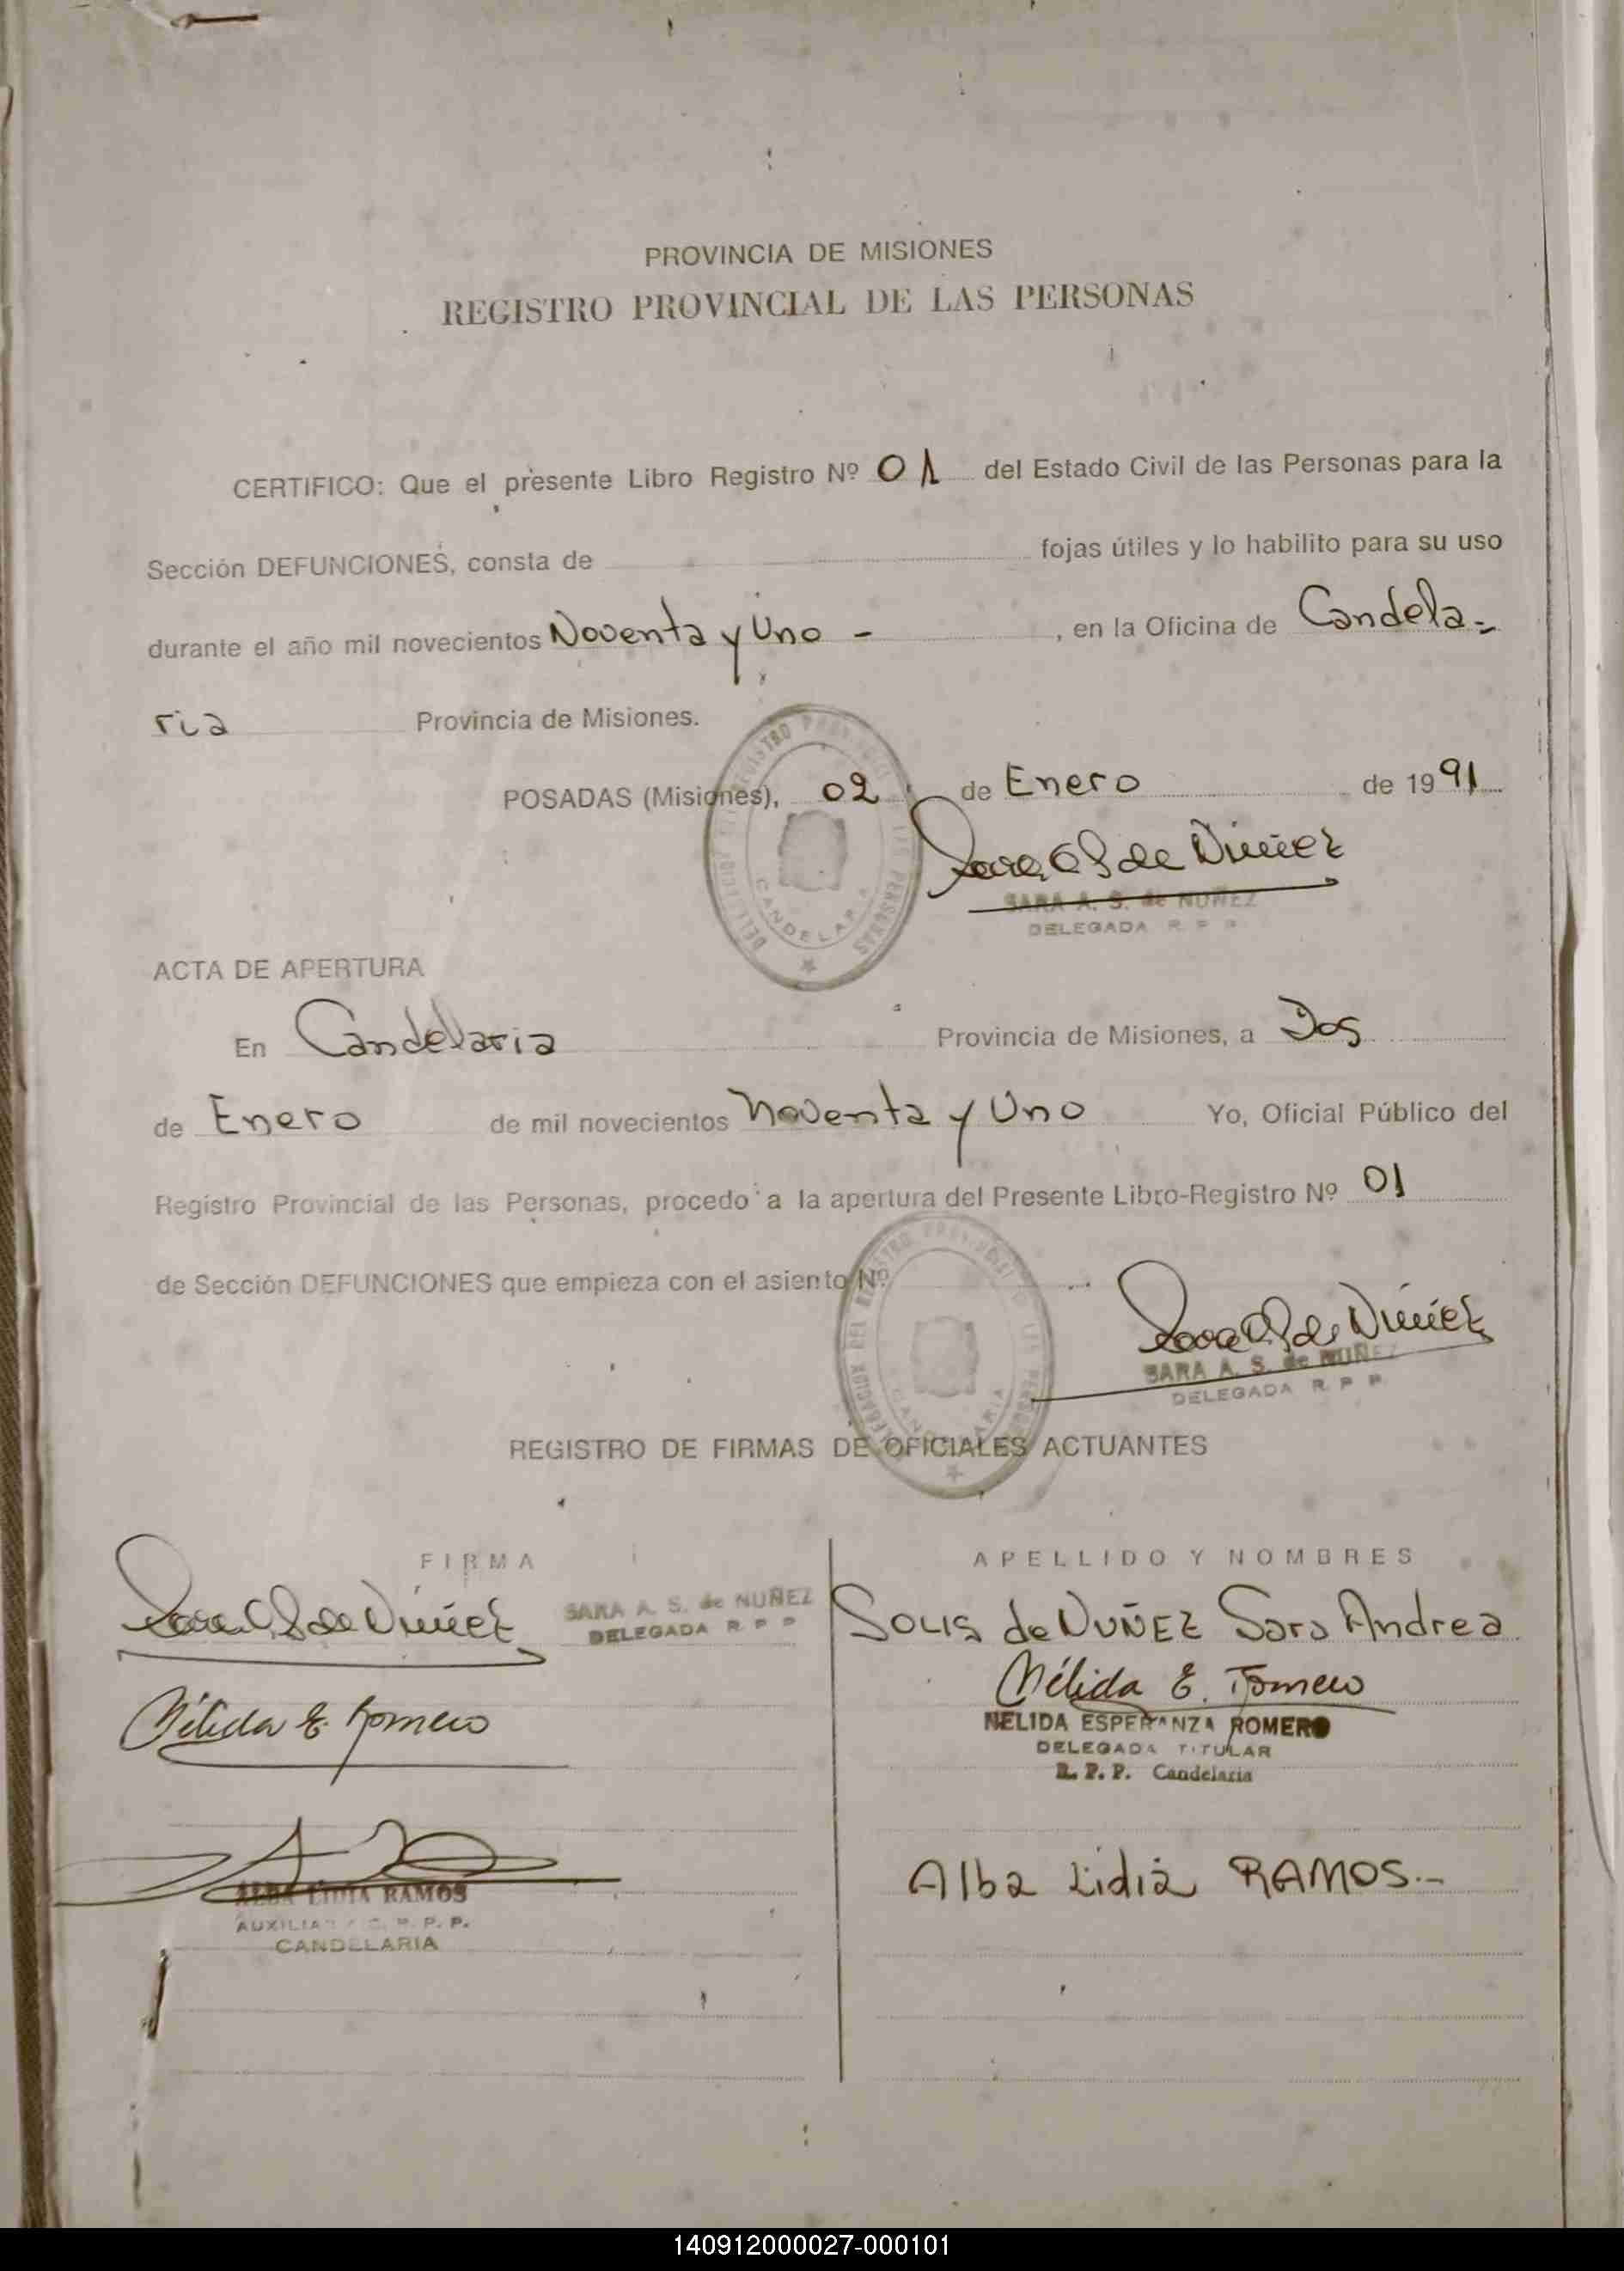 PROVINCIA DE MISIONES
REGISTRO PROVINCIAL DE LAS PERSONAS
CERTIFICO: Que el presente Libro Registro Nº 01 del Estado Civil de las Personas para la
Sección DEFUNCIONES, consta de fojas útiles y lo habilito para su uso
durante el año mil novecientos Noventa y Uno - , en la Oficina de Candela=
ria Provincia de Misiones.
POSADAS (Misiones), 02 de Enero de 1991
Sara A S de Nuñez
SARA A. S. de NUÑEZ
DELEGADA R. P. P.
DELEGACION DEL REGISTRO PROVINCIAL DE LAS PERSONAS
CANDELARIA
ACTA DE APERTURA
En Candelaria Provincia de Misiones, a Dos
de Enero de mil novecientos Noventa y Uno Yo, Oficial Público del
Registro Provincial de las Personas, procedo a la apertura del Presente Libro-Registro Nº 01
de Sección DEFUNCIONES que empieza con el asiento Nº
Sara A S de Nuñez
SARA A. S. de NUÑEZ
DELEGADA R. P. P.
DELEGACION DEL REGISTRO PROVINCIAL DE LAS PERSONAS
CANDELARIA
REGISTRO DE FIRMAS DE OFICIALES ACTUANTES
FIRMA APELLIDO Y NOMBRES
Sara A S de Nuñez SARA A. S. de NUÑEZ Solis de NUÑEZ Sara Andrea
DELEGADA R. P. P.
Nélida E. Romero Nélida E. Romero
NELIDA ESPERANZA ROMERO
DELEGADA TITULAR
R. P. P. Candelaria
ALBA LIDIA RAMOS Alba Lidia RAMOS.-
AUXILIAR R. P. P.
CANDELARIA
140912000027-000101